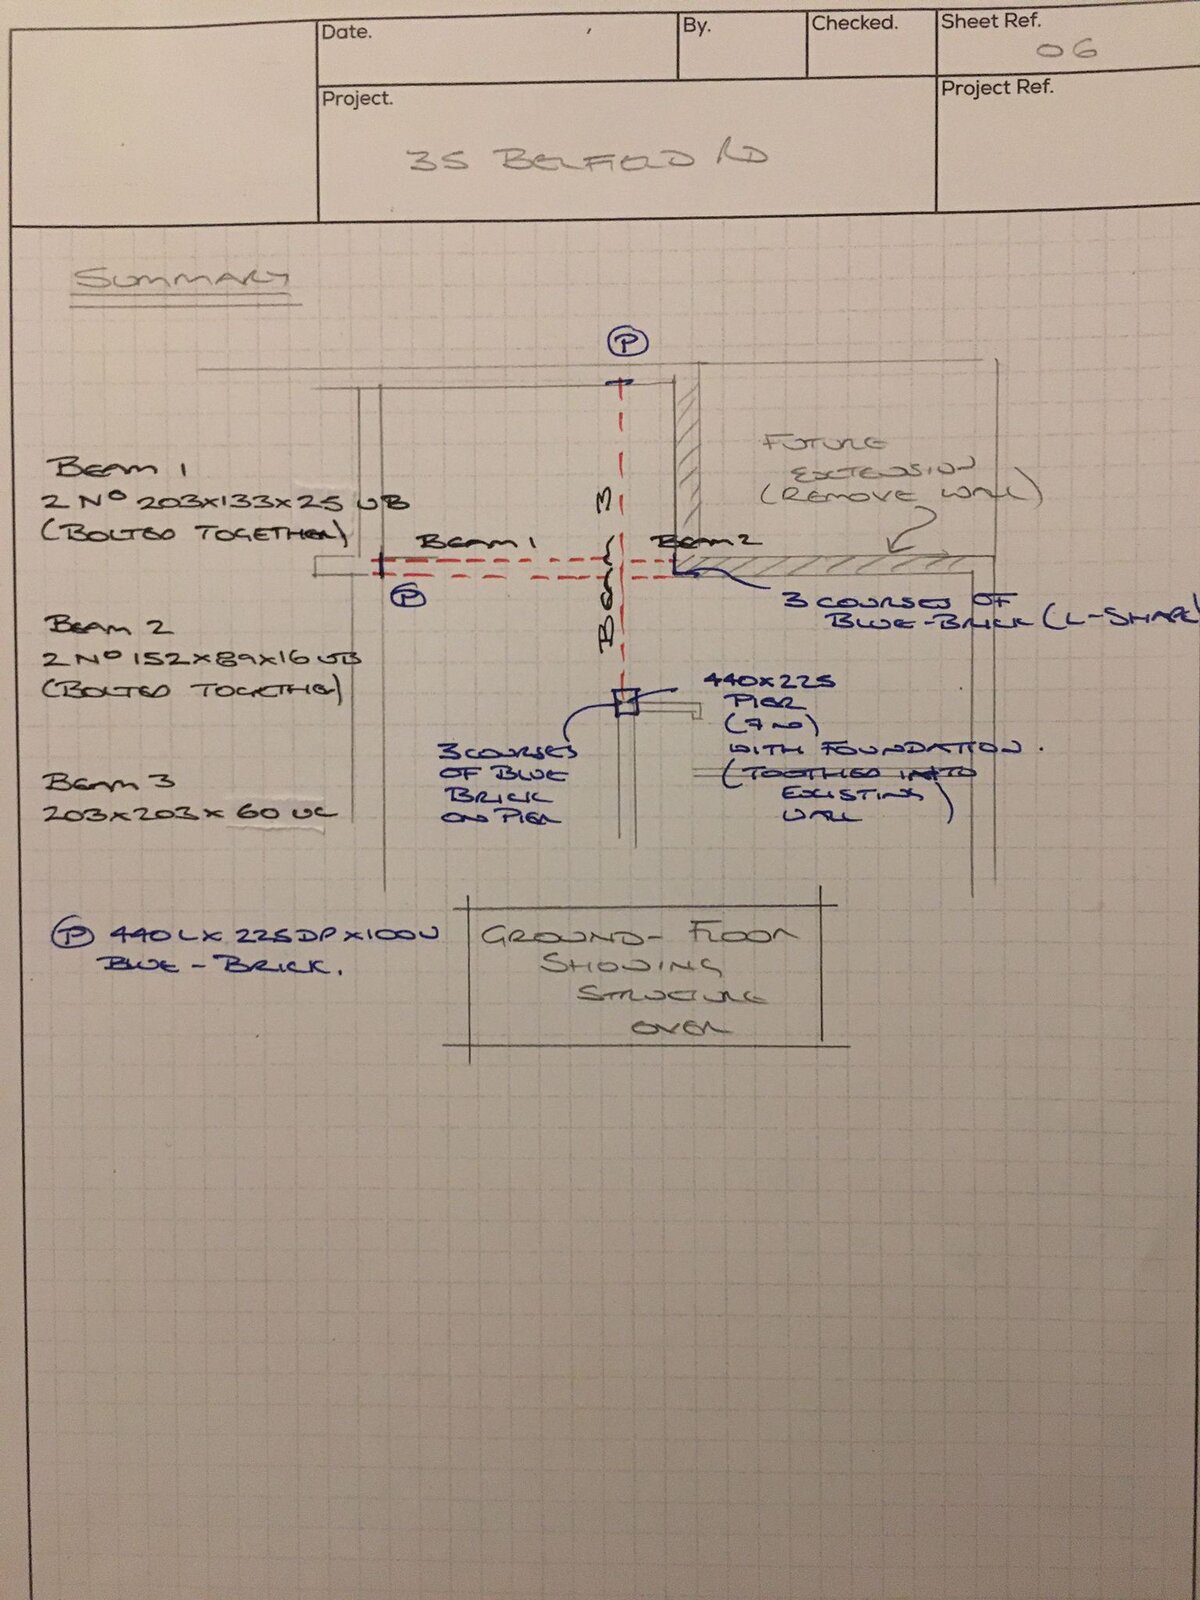 Date.
By.
Checked.
Sheet Ref.
06
Project.
35 BELFIELD RD
Project Ref.
SUMMARY
P
FUTURE
EXTENSION
(REMOVE WALL)
BEAM 1
2 No 203x133x25 UB
(BOLTED TOGETHER)
BEAM 1
BEAM 3
BEAM 2
P
3 COURSES OF
BLUE-BRICK (L-SHAPE)
BEAM 2
2 No 152x89x16 UB
(BOLTED TOGETHER)
440x225
PIER
WITH FOUNDATION.
(TOOTHED INTO
EXISTING
WALL)
3 COURSES
OF BLUE
BRICK
ON PIER
BEAM 3
203x203x60 UC
P 440Lx225DPx100W
BLUE-BRICK.
GROUND-FLOOR
SHOWING
STRUCTURE
OVER